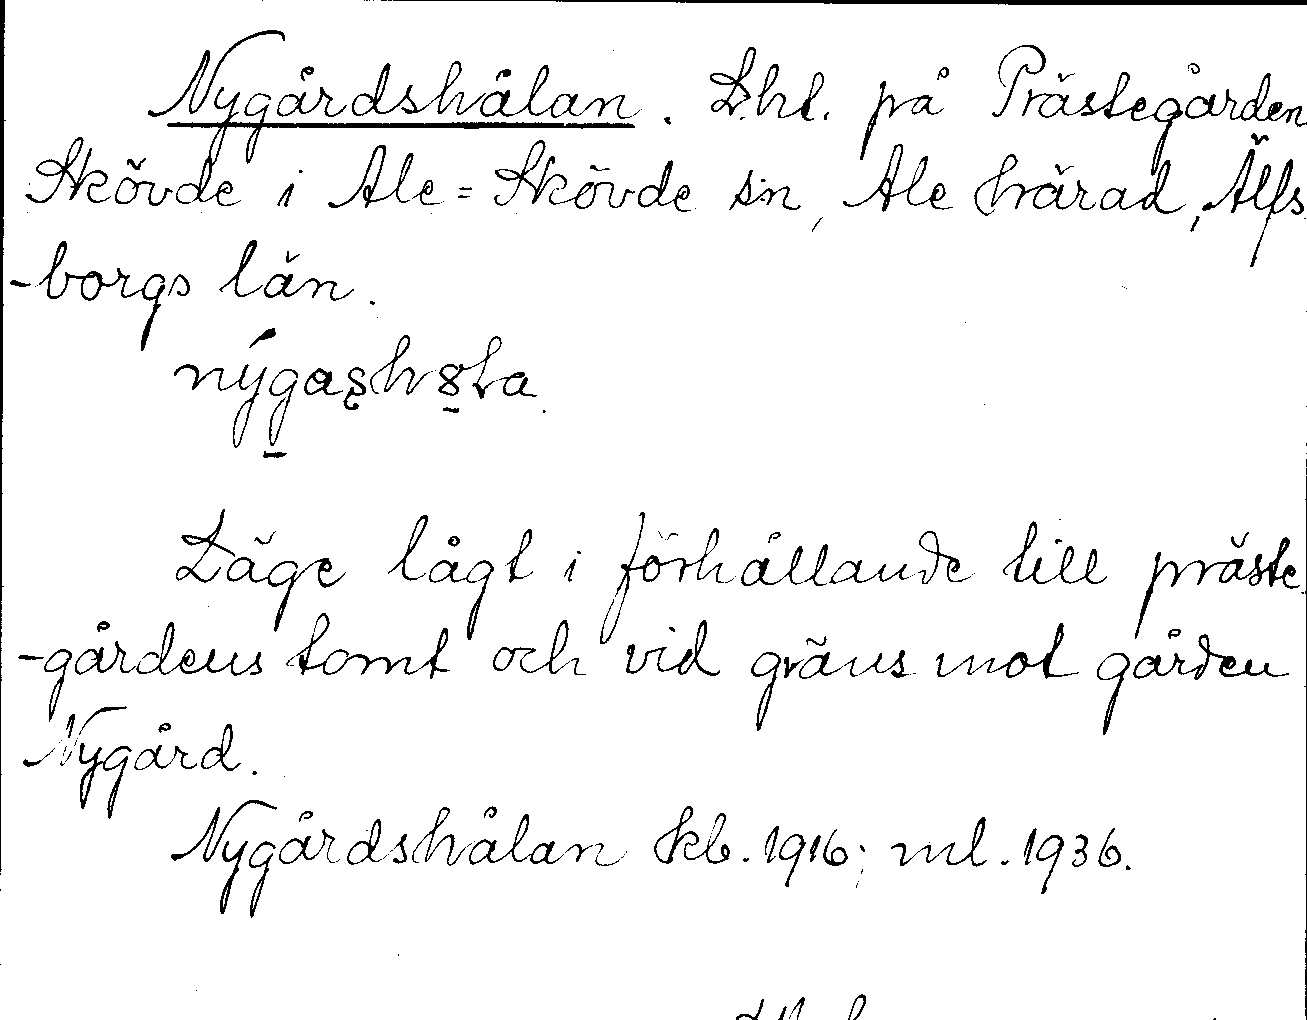 Nygårdshålan. Lht. på Prästegården
Skövde i Ale=Skövde sn, Ale härad, Älfs
-borgs län.
Läge lågt i förhållande till präste
-gårdens tomt och vid gräns mot gården
Nygård.
Nygårdshålan kb. 1916; ml. 1936.